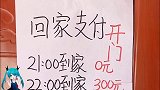 回家支付开门
21:00到家 0元
22:00到家 300元